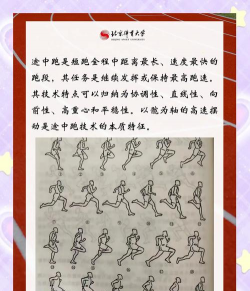 北京体育大学
途中跑是短跑全程中距离最长、速度最快的
跑段，其任务是继续发挥或保持最高跑速。
其技术特点可以归纳为协调性、直线性、向
前性、高重心和平稳性。以髋为轴的高速摆
动是途中跑技术的本质特征。